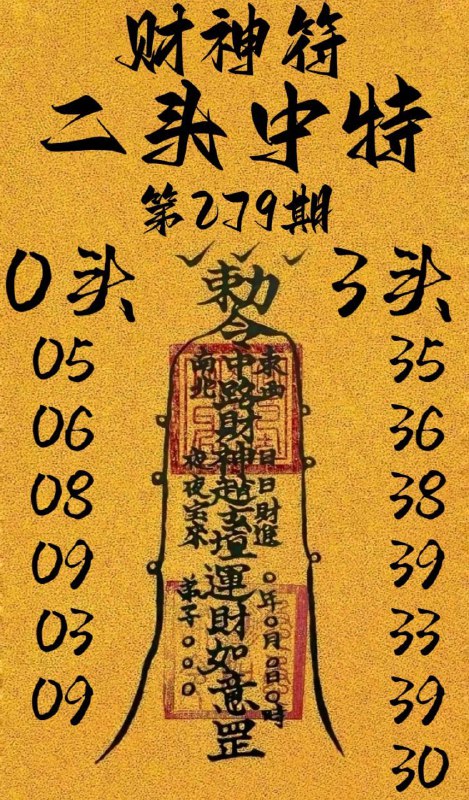 财神符
二头中特
第279期
0头
05
06
08
09
03
09
3头
35
36
38
39
33
39
30
敕令
東西
南北
中路財神趙玄壇運財如意罡
日日財進
夜夜宝來
弟子〇〇〇
〇年〇月〇日〇時